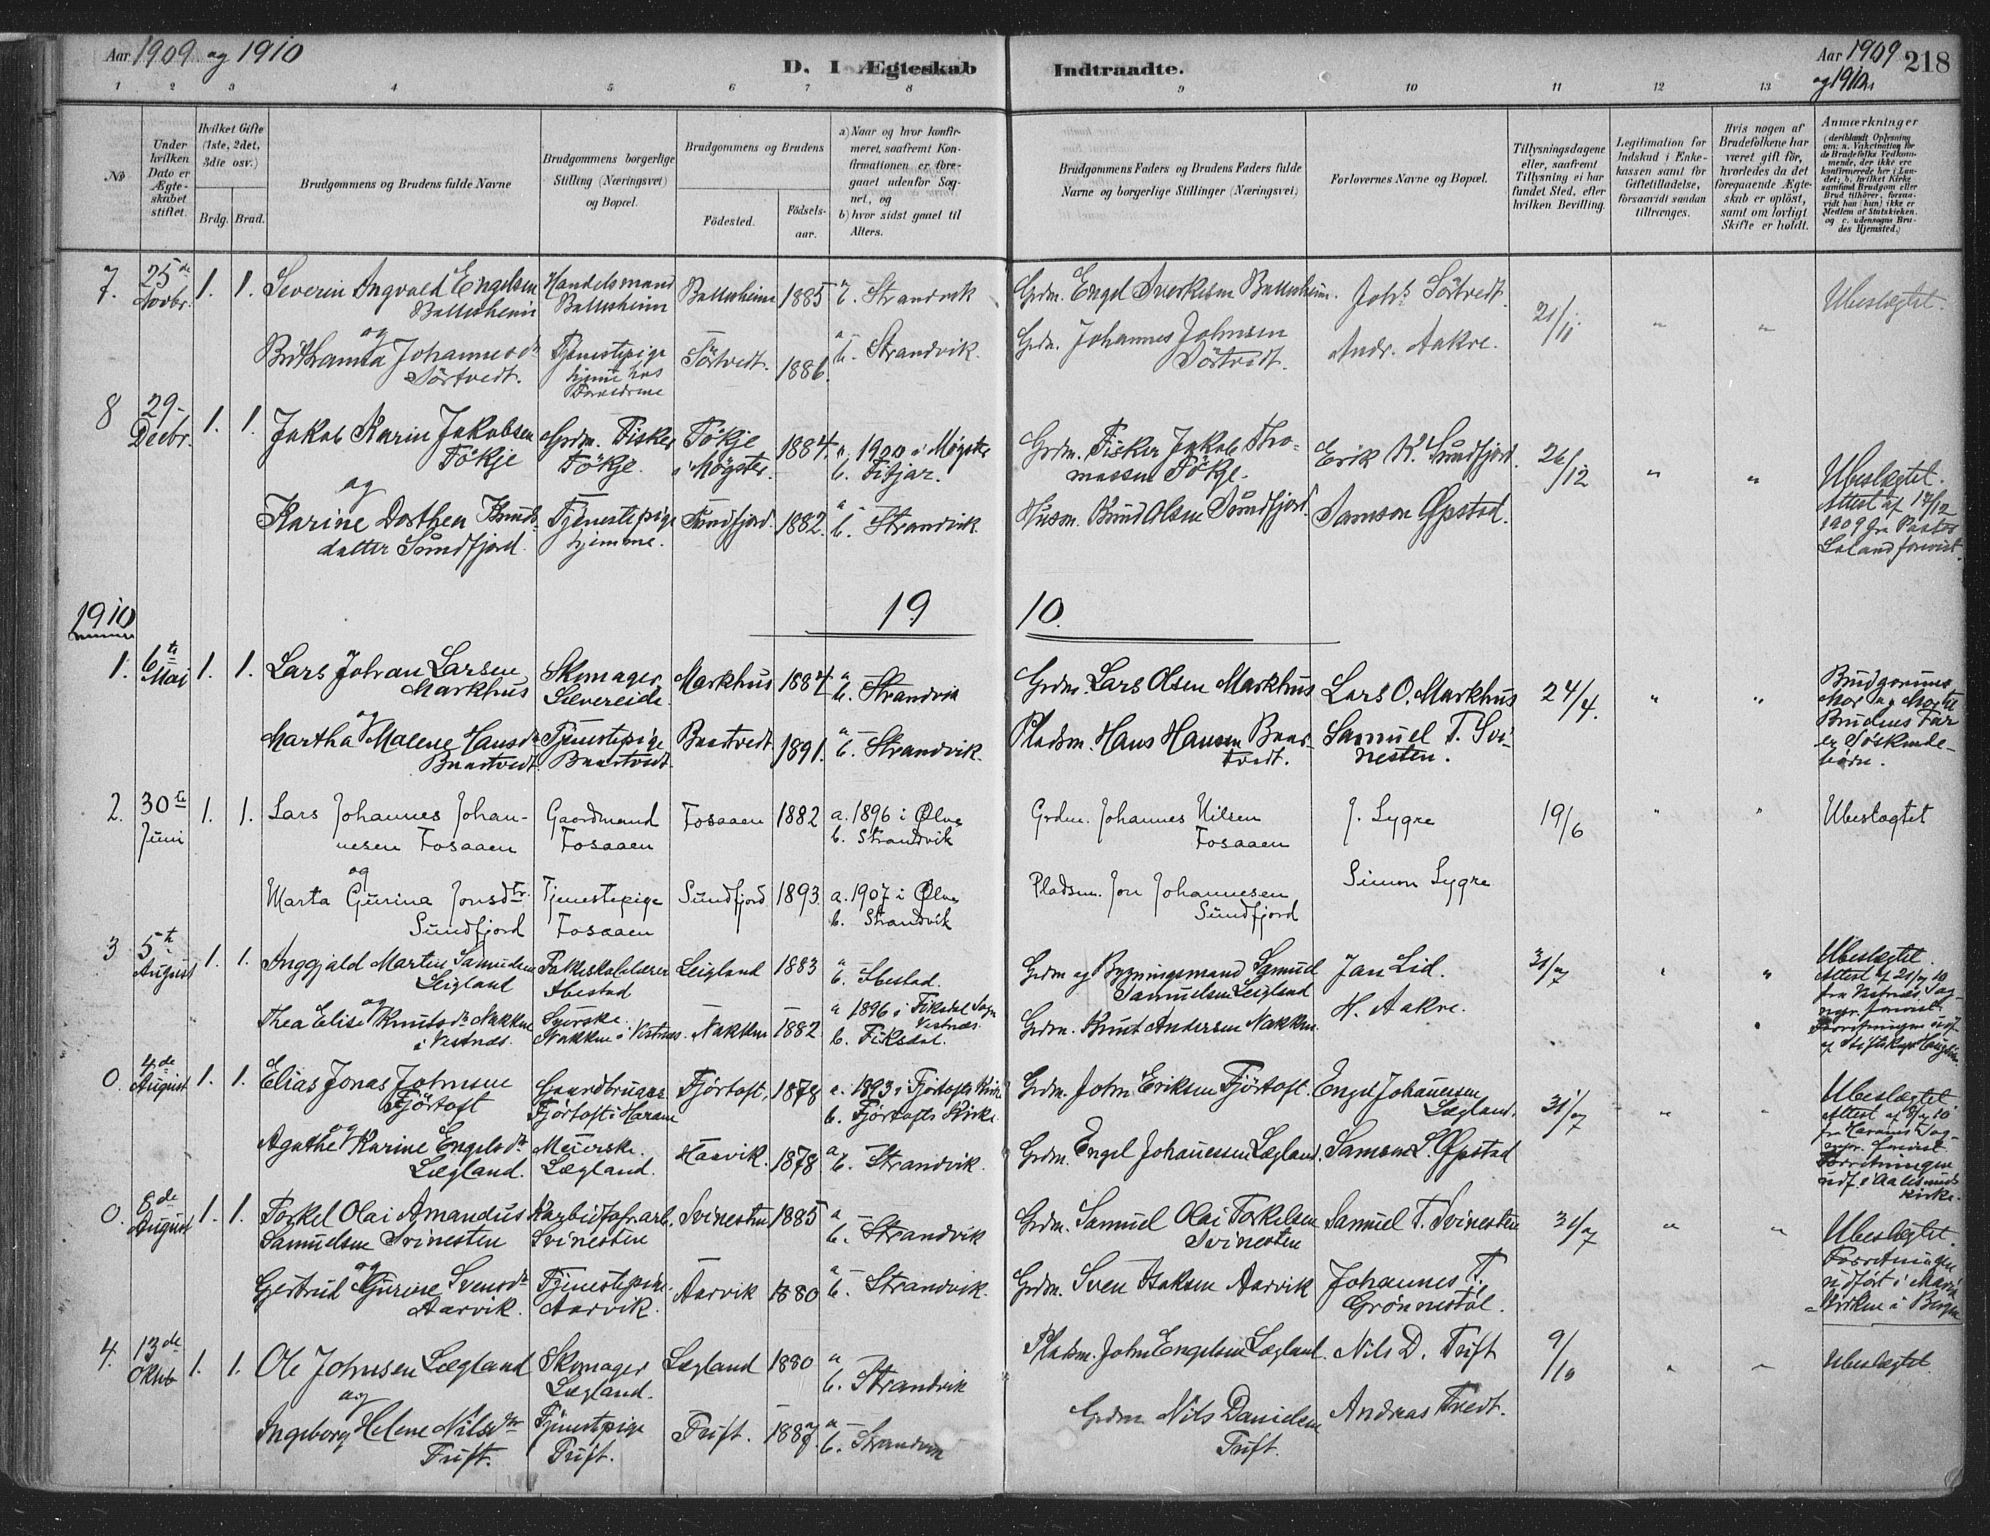 Aar 1909 og 1910
D. I Ægteskab Indtraadte.
Aar 1909 og 1910. 218
1 2 3 4 5 6 7 8 9 10 11 12 13
No
Under hvilken Dato er Ægteskabet stiftet.
Hvilket Gifte (1ste, 2det, 3die osv.)
Brdg. Brud.
Brudgommens og Brudens fulde Navne
Brudgommens borgerlige Stilling (Næringsvei) og Bopæl.
Brudgommens og Brudens
Födested. Födsels-aar.
a) Naar og hvor konfirmeret, saafremt Konfirmationen er foregaaet udenfor Sognet, og
b) hvor sidst gaaet til Alters.
Brudgommens Faders og Brudens Faders fulde Navne og borgerlige Stillinger (Næringsvei)
Forlovernes Navne og Bopæl.
Tillysningsdagene eller, saafremt Tillysning ei har fundet Sted, efter hvilken Bevilling.
Legitimation for Indskud i Enkekassen samt for Giftetilladelse, forsaavidt saadan tiltrænges.
Hvis nogen af Brudefolkene har været gift før, hvorledes da det foregaaende Ægteskab er oplöst, samt om lovligt Skifte er holdt.
Anmærkninger
7. 25de Novbr. 1. 1. Severin Ingvald Engelsen Handelsmand 1885 b. Strandvik Grdm. Engel Johs Sörtvedt. 21/11. " " Ubeslægtet.
og
Johannesdr Sörtvedt. Tjenestepige hjemme hos Forældrene Sörtvedt. 1886. a b. Strandvik. Grdm. Johannes Johnsen Sörtvedt. Andr. Aakre.
8 29- Decbr. 1. 1. Jakob Karin Jakobsen Tökje Grdm. Fisker Tökje. Tökje i Møgster. 1884. a. 1900 i Møgster b. Fitjar. Grdm. Fisker Jakob Thomassen Tökje. Erik K. Sundfjord. 26/12 " " Ubeslægtet.
og
Karine Dorthea Knudsdatter Sundfjord. Tjenestepige hjemme. Sundfjord. 1882. a b. Strandvik Husm. Knud Olsen Sundfjord. Samson Øpstad. Attest af 17/12 1909 fra
1910
1910.
1. 6te Mai 1. 1. Lars Johan Larsen Markhus Skomager Markhus 1884 a b. Strandvik Grdm. Lars Olsen Markhus Lars O. Markhus 24/4. " " Brudgommens Mor og Brudens Far er Söskendebörn.
og
Martha Malene Hansdr Baastvedt. Tjenestepige Baastvedt. Baastvedt 1891. a b. Strandvik. Pladsm. Hans Hansen Baastvedt. Samuel T. Svinesten.
2. 30te Juni 1. 1. Lars Johannes Johannesen Fosaaen Gaardmand Fosaaen Fosaaen 1882 a. 1896 i Ølve b. Strandvik Grdm. Johannes Nilsen Fosaaen J. Lygre 19/6 " " Ubeslægtet
og
Marta Gurina Jonsdtr. Sundfjord Tjenestepige Fosaaen Sundfjord 1893 a. 1907 i Ølve b. Strandvik Pladsm. Jon Johannesen Sundfjord Simon Lygre
3 5te August 1. 1. Inggjald Martin Samuelsen Leigland Folkeskolelærer Ibestad Leigland 1883 a b. Ibestad. Grdm og Bygningsmand Samuel Samuelsen Leigland Jan Lid. 31/7 " " Ubeslægtet.
og
Thea Elise Knutsdr Nakken i Vestnæs. Syerske Nakken i Vestnæs. Nakken 1882 a 1896 i Fiksdal Sogn Vestnæs. b. Fiksdal. Grdm. Knut Andersen Nakken H. Aakre. Attest af 21/7 10 fra Vestnæs
0. 4de August 1. 1. Elias Jonas Johnsen Fjörtoft Gaardbruger Fjörtoft i Haram Fjörtoft. 1878 a. 1893 i Fjörtofts Kirke b. Fjörtofts Kirke. Grdm. John Eriksen Fjörtoft. Engel Johanessen Lægland. 31/7 " " Ubeslægtet.
og
Agathe Karine Engelsdr Lægland. Meierske. Lægland. Haavik. 1878 a b. Strandvik. Grdm. Engel Johanessen Lægland. Samson L. Øpstad Forretningen udf. i Aalesunds Kirke.
0. 8de August 1. 1. Torkel Olai Amandus Samuelsen Svinesten Karbidfabr.arb. Svinesten Svinesten 1885 a b. Strandvik Grdm. Samuel Olai Torkelsen Svinesten Samuel T. Svinesten 31/7 " " Ubeslægtet.
og
Gjertrud Gurine Svensdr Aarvik. Tjenestepige. Aarvik. Aarvik 1880 a b. Strandvik. Grdm. Sven Isaksen Aarvik Johannes T. Grønnestöl. Forretningen udfört i Mariakirken i Bergen
4. 13de Oktb. 1. 1. Ole Johnsen Lægland Skomager Lægland. Lægland 1880 a b. Strandvik Pladsm. John Engelsen Lægland. Nils D. Tuft 9/10 " " Ubeslægtet.
og
Ingeborg Helene Nilsdtr Tuft. Tjenestepige Tuft. Tuft. 1887 a b. Strandvik Grdm Nils Danielsen Tuft. Andreas Tvedt.